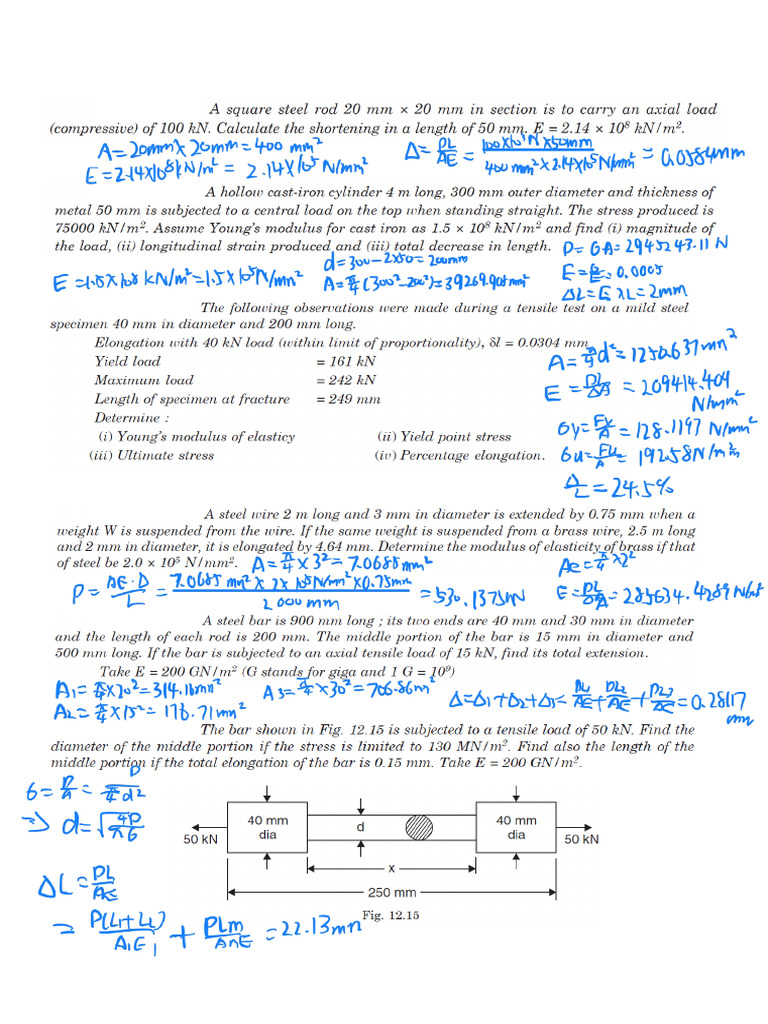 A square steel rod 20 mm × 20 mm in section is to carry an axial load
(compressive) of 100 kN. Calculate the shortening in a length of 50 mm. E = 2.14 × 10⁸ kN/m².
A=20mm×20mm=400 mm²
E=2.14×10⁸kN/m²= 2.14×10⁵N/mm²
Δ=PL/AE=100×10³N×50mm/400mm²×2.14×10⁵N/mm²=0.0584mm
A hollow cast-iron cylinder 4 m long, 300 mm outer diameter and thickness of
metal 50 mm is subjected to a central load on the top when standing straight. The stress produced is
75000 kN/m². Assume Young's modulus for cast iron as 1.5 × 10⁸ kN/m² and find (i) magnitude of
the load, (ii) longitudinal strain produced and (iii) total decrease in length.
P=6A=2945243.11N
d=300-2×50=200mm
E=1.5×10⁸kN/m²=1.5×10⁵N/mm²
A=π/4(300²-200²)=39269.908mm²
ΔL=E×L=2mm
The following observations were made during a tensile test on a mild steel
specimen 40 mm in diameter and 200 mm long.
Elongation with 40 kN load (within limit of proportionality), δl = 0.0304 mm
Yield load = 161 kN
Maximum load = 242 kN
Length of specimen at fracture = 249 mm
Determine :
(i) Young's modulus of elasticy (ii) Yield point stress
(iii) Ultimate stress (iv) Percentage elongation.
A=π/4d²=1256.637mm²
E=PL/ΔA=209414.404
N/mm²
6y=Fy/A=128.1197N/mm²
6u=Fu/A=192.58N/mm²
Δ/L=24.5%
A steel wire 2 m long and 3 mm in diameter is extended by 0.75 mm when a
weight W is suspended from the wire. If the same weight is suspended from a brass wire, 2.5 m long
and 2 mm in diameter, it is elongated by 4.64 mm. Determine the modulus of elasticity of brass if that
of steel be 2.0 × 10⁵ N/mm².
A=π/4×3²=7.0685mm²
P=AE·D/L=7.0685mm²×2×10⁵N/mm²×0.75mm/2000mm=530.1375N
A steel bar is 900 mm long ; its two ends are 40 mm and 30 mm in diameter
and the length of each rod is 200 mm. The middle portion of the bar is 15 mm in diameter and
500 mm long. If the bar is subjected to an axial tensile load of 15 kN, find its total extension.
Take E = 200 GN/m² (G stands for giga and 1 G = 10⁹)
A₁=π/4×20²=314.16mm²
A3=π/4×30²=706.86m²
A₂=π/4×15²=176.71mm²
Δ=Δ₁+Δ₂+Δ₃=PL₁/AE+PL₂/AE+PL₃/AE=0.28117
mm
The bar shown in Fig. 12.15 is subjected to a tensile load of 50 kN. Find the
diameter of the middle portion if the stress is limited to 130 MN/m². Find also the length of the
middle portion if the total elongation of the bar is 0.15 mm. Take E = 200 GN/m².
6=P/A=P/π/4d²
⇒d=√4P/π6
40 mm
dia
d
40 mm
dia
50 kN
50 kN
x
250 mm
Fig. 12.15
ΔL=PL/AE
=P(L₁+L₂)/A₁E₁+PLm/AmE=22.13mm